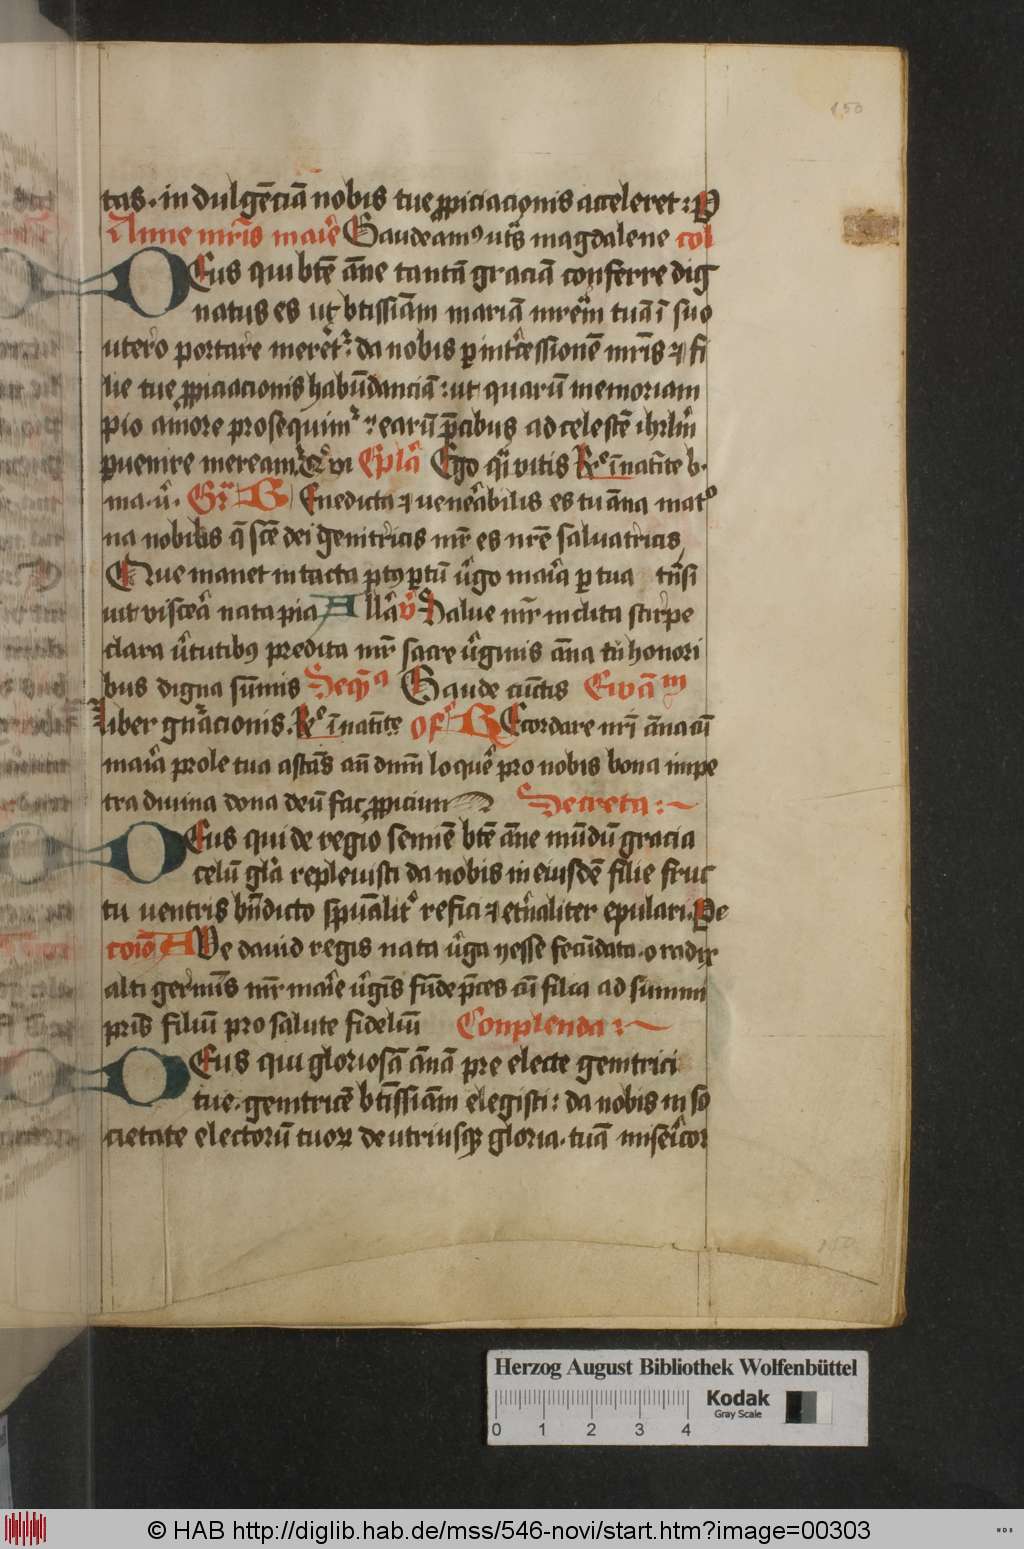 150
tas · in dulgēciā nobis tue ꝓpiciacionis acceleret : P
Anne mr̄is marie Gaudeamꝰ ut̄s magdalene col
DEus qui bt̄e āne tantā graciā conferre dig
natus es ut btissiām mariā mrēm tuā ī suo
utero portare meret᷑ : da nobis ꝑ int̄cessionē mr̄is ⁊ fi
lie tue ꝓpiciacionis habūdanciā : ut quarū memoriam
pio amore prosequim᷑ : earū p̄cibus ad celestē ihrlm̄
ꝑuenire meream᷑ Qui Ep̄la Ego q̄i vitis Re͛ īnatīte b ·
ma · v̄ · Gr̄ BEnedicta ⁊ venerabilis es tu āna mat᷑o
na nobilis q̄ scē dei genitricis mr̄ es nr̄e saluatricis
Que manet intacta ꝑtꝰ ꝑtū v̄go maria ꝑ tua tn̄si
uit viscēa nata pia Allā v̄ Salue mr̄ inclita stirpe
clara v̄tutibꝰ predita mr̄ sacre v̄ginis āna tū honori
bus digna sūmis Seqᵃ Gaude cunctis Ewāᵐ
Liber gn̄acionis · Re͛ īnatīte Of͛ REcordare mr̄i āna cū
maria prole tua astās an̄ dn̄m loquēr pro nobis bona impe
tra diuina dona deū fac ꝓpicium Secreta :
DEus qui de regio semīe bt̄e āne mūdū gracia
celū glā repleuisti da nobis in eiusdē filie fruc
tu ventris bn̄dicto sp̄ualit᷑ refici ⁊ et̄naliter epulari · Pe
coīo AVe dauid regis nata v̄ga yesse fecūdata · o radix
alti germīs mr̄ marie v̄gīs fūde p̄ces cū filia ad summi
pr̄is filiū pro salute fideliū Conplenda :
DEus qui gloriosā ānā pre electe genitrici
tue · genitricē bt̄issiām elegisti : da nobis in so
cietate electorū tuoꝝ de utriusqꝫ gloria · tuā misericor
Herzog August Bibliothek Wolfenbüttel
0 1 2 3 4
Kodak
Gray Scale
© HAB http://diglib.hab.de/mss/546-novi/start.htm?image=00303